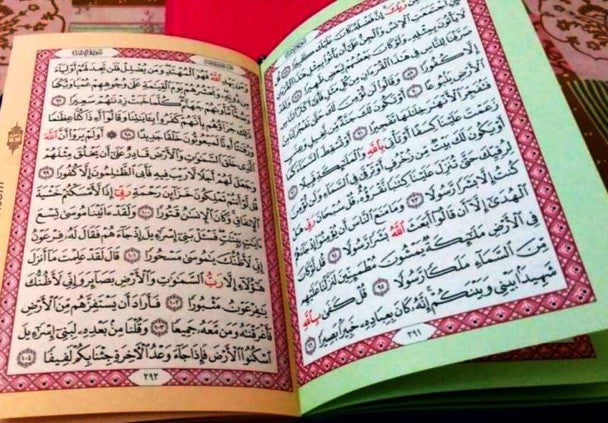 رَّبِّكَ إِنَّ فَضْلَهُ كَانَ عَلَيْكَ
ٱجْتَمَعَتِ ٱلْإِنسُ وَٱلْجِنُّ عَلَىٰٓ أَن يَأْتُوا۟
لَا يَأْتُونَ بِمِثْلِهِۦ وَلَوْ كَانَ بَعْضُهُمْ لِبَعْضٍ ظَهِيرًا
صَرَّفْنَا لِلنَّاسِ فِى هَٰذَا ٱلْقُرْءَانِ مِن كُلِّ مَثَلٍ فَأَبَىٰٓ أَكْثَرُ
إِلَّا كُفُورًا ٨٩ وَقَالُوا۟ لَن نُّؤْمِنَ لَكَ حَتَّىٰ
ٱلْأَرْضِ يَنۢبُوعًا ٩٠ أَوْ تَكُونَ لَكَ جَنَّةٌ مِّن نَّخِيلٍ
فَتُفَجِّرَ ٱلْأَنْهَٰرَ خِلَٰلَهَا تَفْجِيرًا ٩١ أَوْ تُسْقِطَ ٱلسَّمَآءَ
زَعَمْتَ عَلَيْنَا كِسَفًا أَوْ تَأْتِىَ بِٱللَّهِ وَٱلْمَلَٰٓئِكَةِ قَبِيلًا
أَوْ يَكُونَ لَكَ بَيْتٌ مِّن زُخْرُفٍ أَوْ تَرْقَىٰ فِى ٱلسَّمَآءِ وَلَن
لِرُقِيِّكَ حَتَّىٰ تُنَزِّلَ عَلَيْنَا كِتَٰبًا نَّقْرَؤُهُۥ قُلْ سُبْحَانَ رَبِّى
كُنتُ إِلَّا بَشَرًا رَّسُولًا ٩٣ وَمَا مَنَعَ ٱلنَّاسَ أَن يُؤْمِنُوٓا۟ إِذْ جَآءَهُمُ
ٱلْهُدَىٰٓ إِلَّآ أَن قَالُوٓا۟ أَبَعَثَ ٱللَّهُ بَشَرًا رَّسُولًا ٩٤ قُل لَّوْ كَانَ
فِى ٱلْأَرْضِ مَلَٰٓئِكَةٌ يَمْشُونَ مُطْمَئِنِّينَ لَنَزَّلْنَا عَلَيْهِم
مِّنَ ٱلسَّمَآءِ مَلَكًا رَّسُولًا ٩٥ قُلْ كَفَىٰ بِٱللَّهِ
شَهِيدًۢا بَيْنِى وَبَيْنَكُمْ إِنَّهُۥ كَانَ بِعِبَادِهِۦ خَبِيرًۢا بَصِيرًا ٩٦
٢٩١
سُورَةُ الإِسْرَاءِ
ٱللَّهُ فَهُوَ ٱلْمُهْتَدِ وَمَن يُضْلِلْ فَلَن تَجِدَ لَهُمْ أَوْلِيَآءَ
وَنَحْشُرُهُمْ يَوْمَ ٱلْقِيَٰمَةِ عَلَىٰ وُجُوهِهِمْ عُمْيًا وَبُكْمًا
مَّأْوَىٰهُمْ جَهَنَّمُ كُلَّمَا خَبَتْ زِدْنَٰهُمْ سَعِيرًا ٩٧
جَزَآؤُهُم بِأَنَّهُمْ كَفَرُوا۟ بِـَٔايَٰتِنَا وَقَالُوٓا۟ أَءِذَا كُنَّا عِظَٰمًا
وَرُفَٰتًا أَءِنَّا لَمَبْعُوثُونَ خَلْقًا جَدِيدًا ٩٨ أَوَلَمْ يَرَوْا۟ أَنَّ ٱللَّهَ
ٱلَّذِى خَلَقَ ٱلسَّمَٰوَٰتِ وَٱلْأَرْضَ قَادِرٌ عَلَىٰٓ أَن يَخْلُقَ مِثْلَهُمْ
وَجَعَلَ لَهُمْ أَجَلًا لَّا رَيْبَ فِيهِ فَأَبَى ٱلظَّٰلِمُونَ إِلَّا كُفُورًا ٩٩
قُل لَّوْ أَنتُمْ تَمْلِكُونَ خَزَآئِنَ رَحْمَةِ رَبِّىٓ إِذًا لَّأَمْسَكْتُمْ خَشْيَةَ
ٱلْإِنفَاقِ وَكَانَ ٱلْإِنسَٰنُ قَتُورًا ١٠٠ وَلَقَدْ ءَاتَيْنَا مُوسَىٰ تِسْعَ
ءَايَٰتٍۭ بَيِّنَٰتٍ فَسْـَٔلْ بَنِىٓ إِسْرَٰٓءِيلَ إِذْ جَآءَهُمْ فَقَالَ لَهُۥ فِرْعَوْنُ
إِنِّى لَأَظُنُّكَ يَٰمُوسَىٰ مَسْحُورًا ١٠١ قَالَ لَقَدْ عَلِمْتَ مَآ أَنزَلَ
هَٰٓؤُلَآءِ إِلَّا رَبُّ ٱلسَّمَٰوَٰتِ وَٱلْأَرْضِ بَصَآئِرَ وَإِنِّى لَأَظُنُّكَ
يَٰفِرْعَوْنُ مَثْبُورًا ١٠٢ فَأَرَادَ أَن يَسْتَفِزَّهُم مِّنَ ٱلْأَرْضِ
فَأَغْرَقْنَٰهُ وَمَن مَّعَهُۥ جَمِيعًا ١٠٣ وَقُلْنَا مِنۢ بَعْدِهِۦ لِبَنِىٓ إِسْرَٰٓءِيلَ
ٱسْكُنُوا۟ ٱلْأَرْضَ فَإِذَا جَآءَ وَعْدُ ٱلْءَاخِرَةِ جِئْنَا بِكُمْ لَفِيفًا ١٠٤
٢٩٢